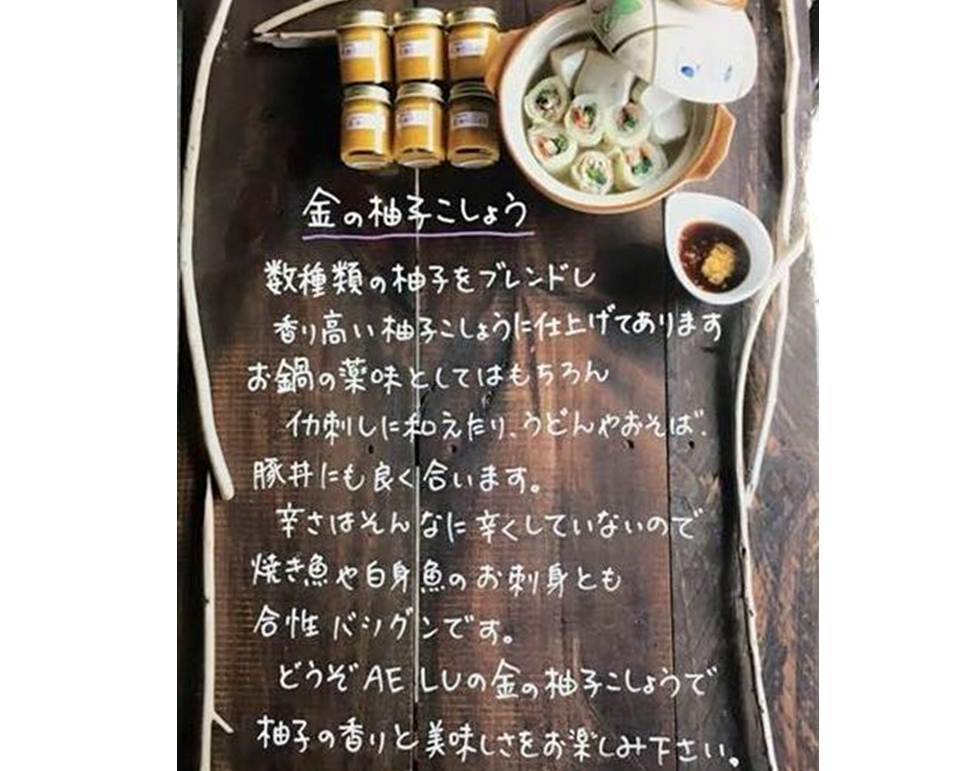 金の柚子こしょう
数種類の柚子をブレンドし
香り高い柚子こしょうに仕上げてあります
お鍋の薬味としてはもちろん
イカ刺しに和えたり、うどんやおそば、
豚丼にも良く合います。
辛さはそんなに辛くしていないので
焼き魚や白身魚のお刺身とも
合性バツグンです。
どうぞAELUの金の柚子こしょうで
柚子の香りと美味しさをお楽しみ下さい。